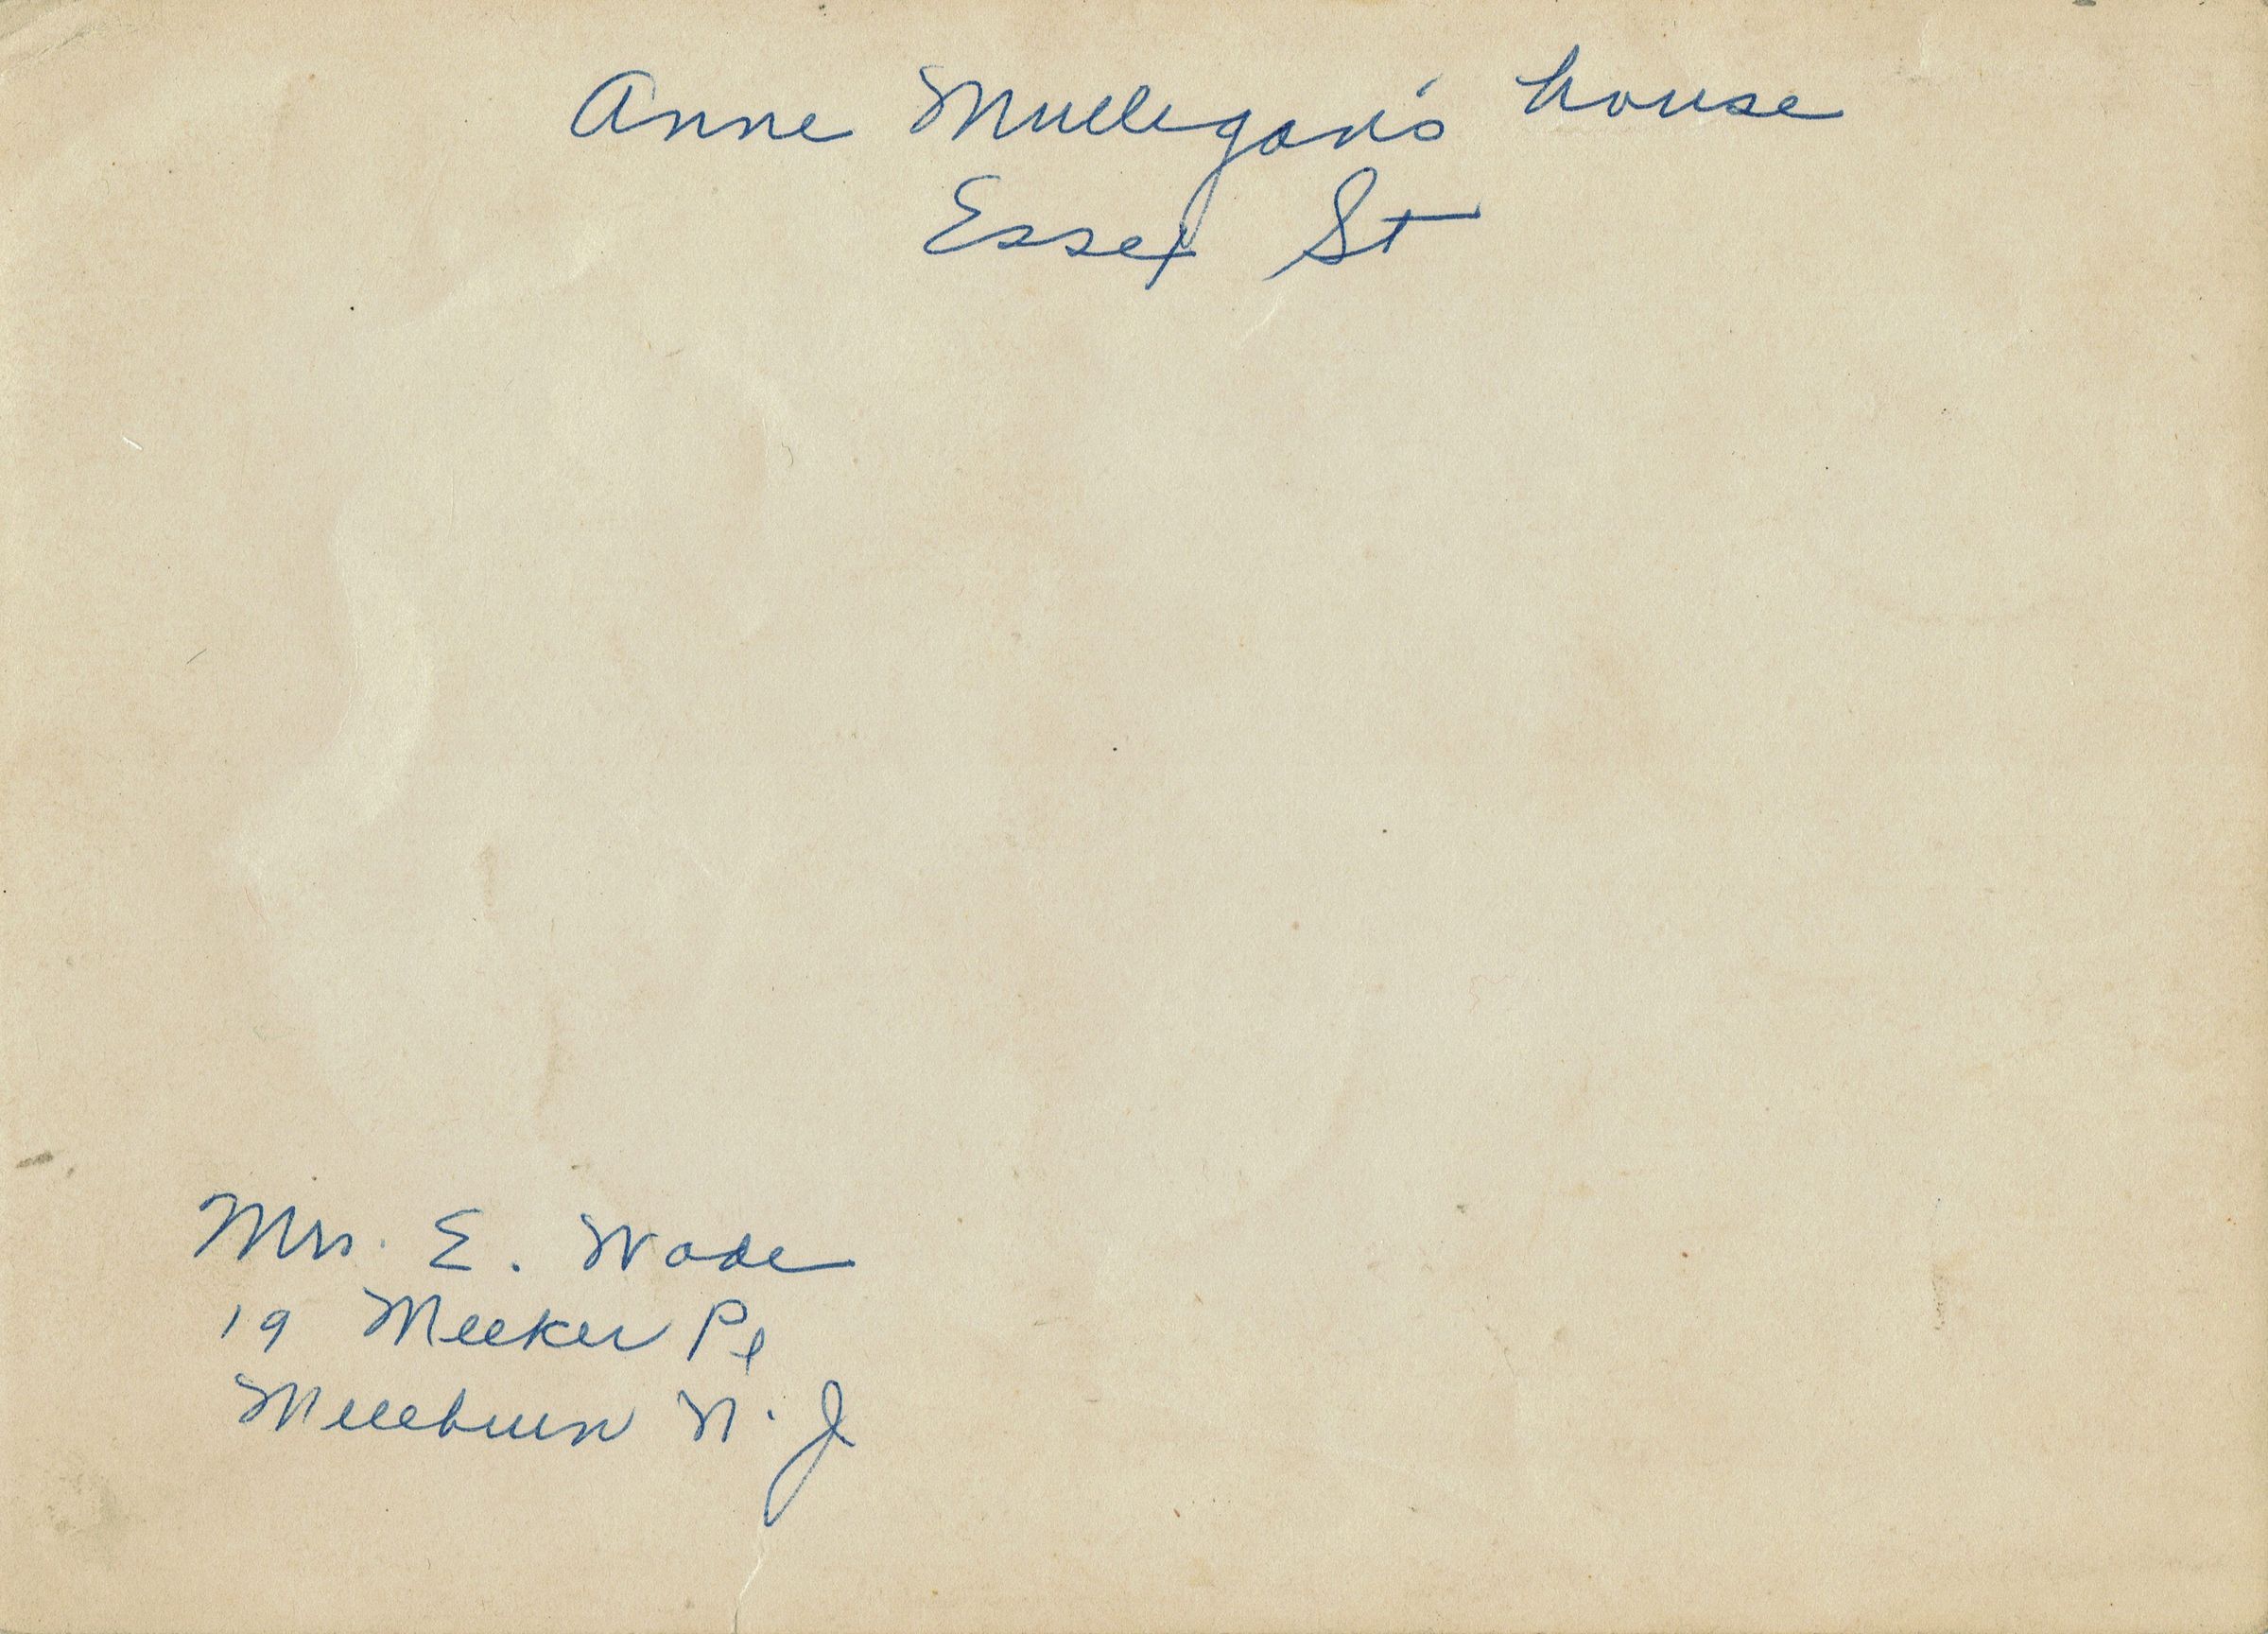 Anne Mulligan's house
Essex St
Mrs. E. Wade
19 Meeker Pl
Millburn N. J